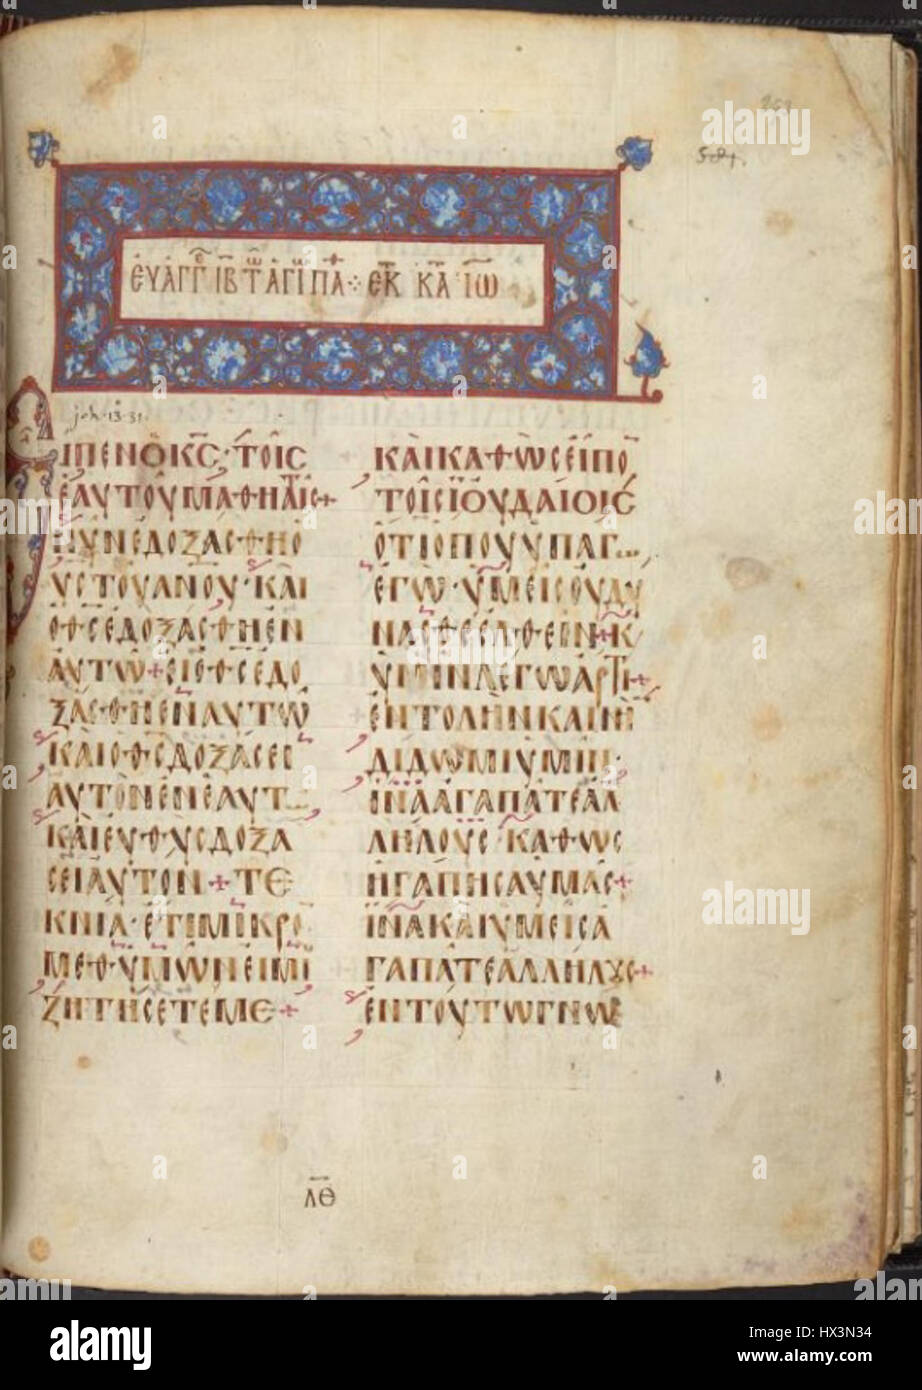 ΕΥΑΓΓ ΙΒ Τ ΑΓΙ ΠΑ ΕΚ Κ ΙΩ
joh. 13. 31.
ΙΠΕΝ Ο ΚΣ· ΤΟΙΣ
ΕΑΥΤΟΥ ΜΑΘΗΤΑΙΣ+
ΝΥΝ ΕΔΟΞΑΣΘΗ Ο
ΥΣ ΤΟΥ ΑΝΟΥ· ΚΑΙ
Ο ΘΣ ΕΔΟΞΑΣΘΗ ΕΝ
ΑΥΤΩ+ ΕΙ Ο ΘΣ ΕΔΟ
ΞΑΣΘΗ ΕΝ ΑΥΤΩ
ΚΑΙ Ο ΘΣ ΔΟΞΑΣΕΙ
ΑΥΤΟΝ ΕΝ ΕΑΥΤ
ΚΑΙ ΕΥΘΥΣ ΔΟΞΑ
ΣΕΙ ΑΥΤΟΝ+ ΤΕ
ΚΝΙΑ· ΕΤΙ ΜΙΚΡΟ
ΜΕΘ ΥΜΩΝ ΕΙΜΙ
ΖΗΤΗΣΕΤΕ ΜΕ+
ΚΑΙ ΚΑΘΩΣ ΕΙΠΟ
ΤΟΙΣ ΙΟΥΔΑΙΟΙΣ
ΟΤΙ ΟΠΟΥ ΥΠΑΓ
ΕΓΩ· ΥΜΕΙΣ ΟΥ ΔΥ
ΝΑΣΘΕ ΕΛΘΕΙΝ+ Κ
ΥΜΙΝ ΛΕΓΩ ΑΡΤΙ+
ΕΝΤΟΛΗΝ ΚΑΙΝΗ
ΔΙΔΩΜΙ ΥΜΙΝ·
ΙΝΑ ΑΓΑΠΑΤΕ ΑΛ
ΛΗΛΟΥΣ· ΚΑΘΩΣ
ΗΓΑΠΗΣΑ ΥΜΑΣ+
ΙΝΑ ΚΑΙ ΥΜΕΙΣ Α
ΓΑΠΑΤΕ ΑΛΛΗΛΟΥΣ+
ΕΝ ΤΟΥΤΩ ΓΝΩ
ΛΘ
alamy
Image ID: HX3N34
www.alamy.com